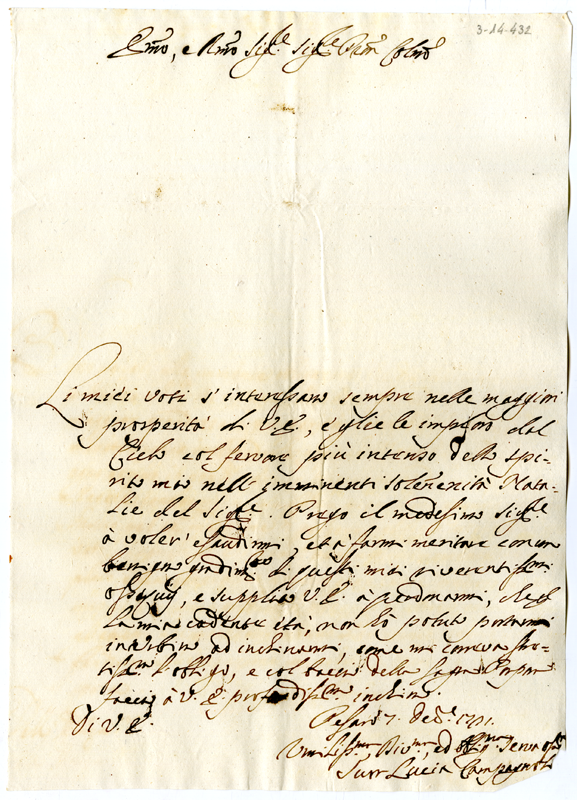 3-14-432
Emo, e Rmo Sigre Sigre Pron Colmo
Li miei voti s'interessano sempre nelle maggiori
prosperità di V.E., e glie le imploro dal
Cielo col fervore più intenso dello spi-
rito mio nell'imminenti solennità Nata-
lie del Sigre. Prego il medesimo Sigre
à voler' esaudirmi, et à farmi meritare con un
benigno gradimto di questi miei riverentissimi
ossequij, e supplico V.E. à perdonarmi, che
la mia cadente età, non hò potuto portarmi
in Urbino ad inchinarmi, come mi correva stret-
tissmo l'obligo, e col bacio della Sagra Porpora
faccio à V.E. profondissma inchino.
Di V.E.
Pesaro 7. Dec. 1721.
Umilissma, Divma, ed obligma Serva
Suor Lucia Campagnoli